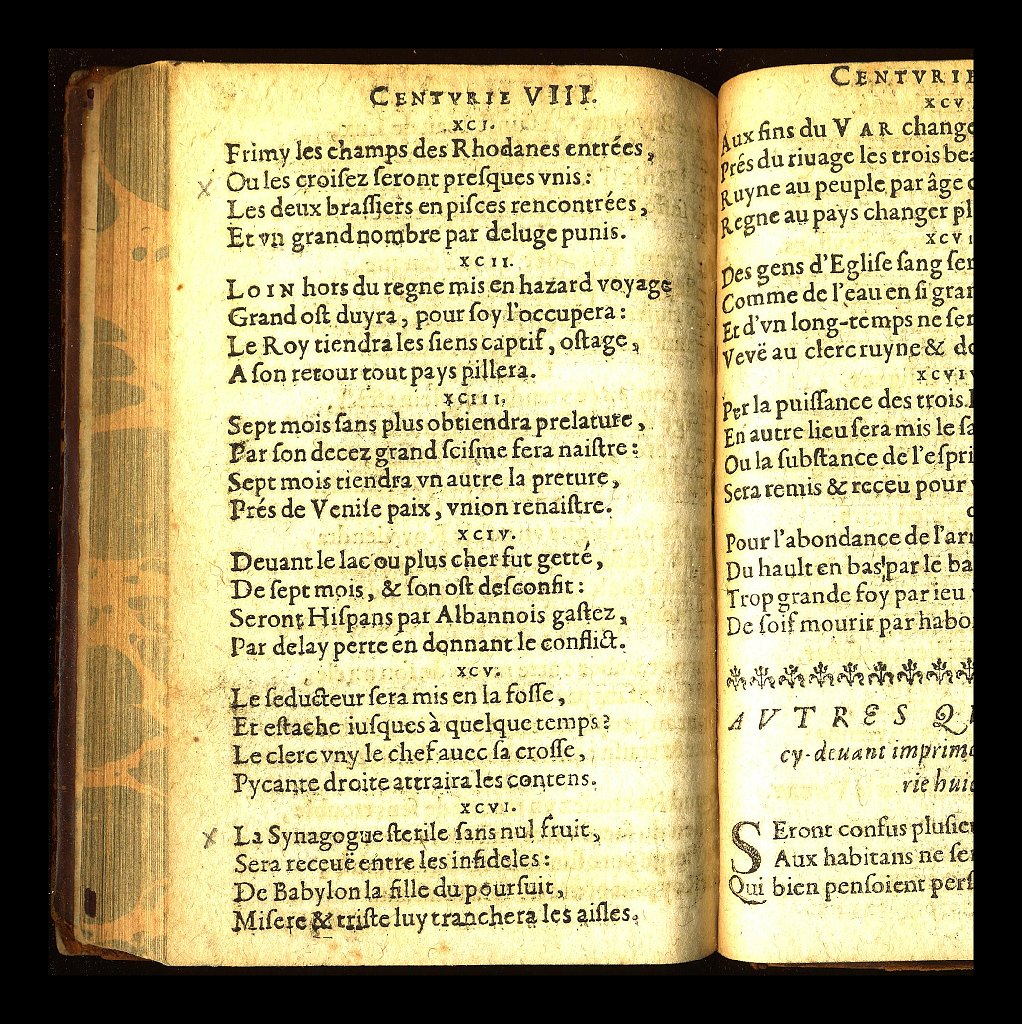 CENTVRIE VIII.
XCI.
Frimy les champs des Rhodanes entrées,
Ou les croiſez ſeront preſques vnis:
Les deux braſſiers en piſces rencontrées,
Et vn grand nombre par deluge punis.
XCII.
LOIN hors du regne mis en hazard voyage
Grand oſt duyra, pour ſoy l'occupera:
Le Roy tiendra les ſiens captif, oſtage,
A ſon retour tout pays pillera.
XCIII,
Sept mois ſans plus obtiendra prelature,
Par ſon decez grand ſciſme fera naiſtre:
Sept mois tiendra vn autre la preture,
Prés de Veniſe paix, vnion renaiſtre.
XCIV.
Deuant le lac ou plus cher fut getté,
De ſept mois, & ſon oſt deſconfit:
Seront Hiſpans par Albannois gaſtez,
Par delay perte en donnant le conflict.
XCV.
Le ſeducteur ſera mis en la foſſe,
Et eſtache iuſques à quelque temps:
Le clerc vny le chef auec ſa croſſe,
Pycante droite attraira les contens.
XCVI.
La Synagogue ſterile ſans nul fruit,
Sera receuë entre les infideles:
De Babylon la fille du pourſuit,
Miſere & triſte luy tranchera les aiſles.
CENTVRIE
XCV
Aux fins du VAR change
Prés du riuage les trois bea
Ruyne au peuple par âge
Regne au pays changer pl
XCVI
Des gens d'Egliſe ſang ſer
Comme de l'eau en ſi gran
Et d'vn long-temps ne ſer
Vevë au clerc ruyne & do
XCVIV
Per la puiſſance des trois
En autre lieu ſera mis le ſa
Ou la ſubſtance de l'eſpri
Sera remis & receu pour
Pour l'abondance de l'ar
Du hault en bas par le ba
Trop grande foy par ieu
De ſoif mourir par habo
AVTRES Q
cy-deuant imprim
rie hui
Seront confus pluſieu
Aux habitans ne ſer
Qui bien penſoient perſ